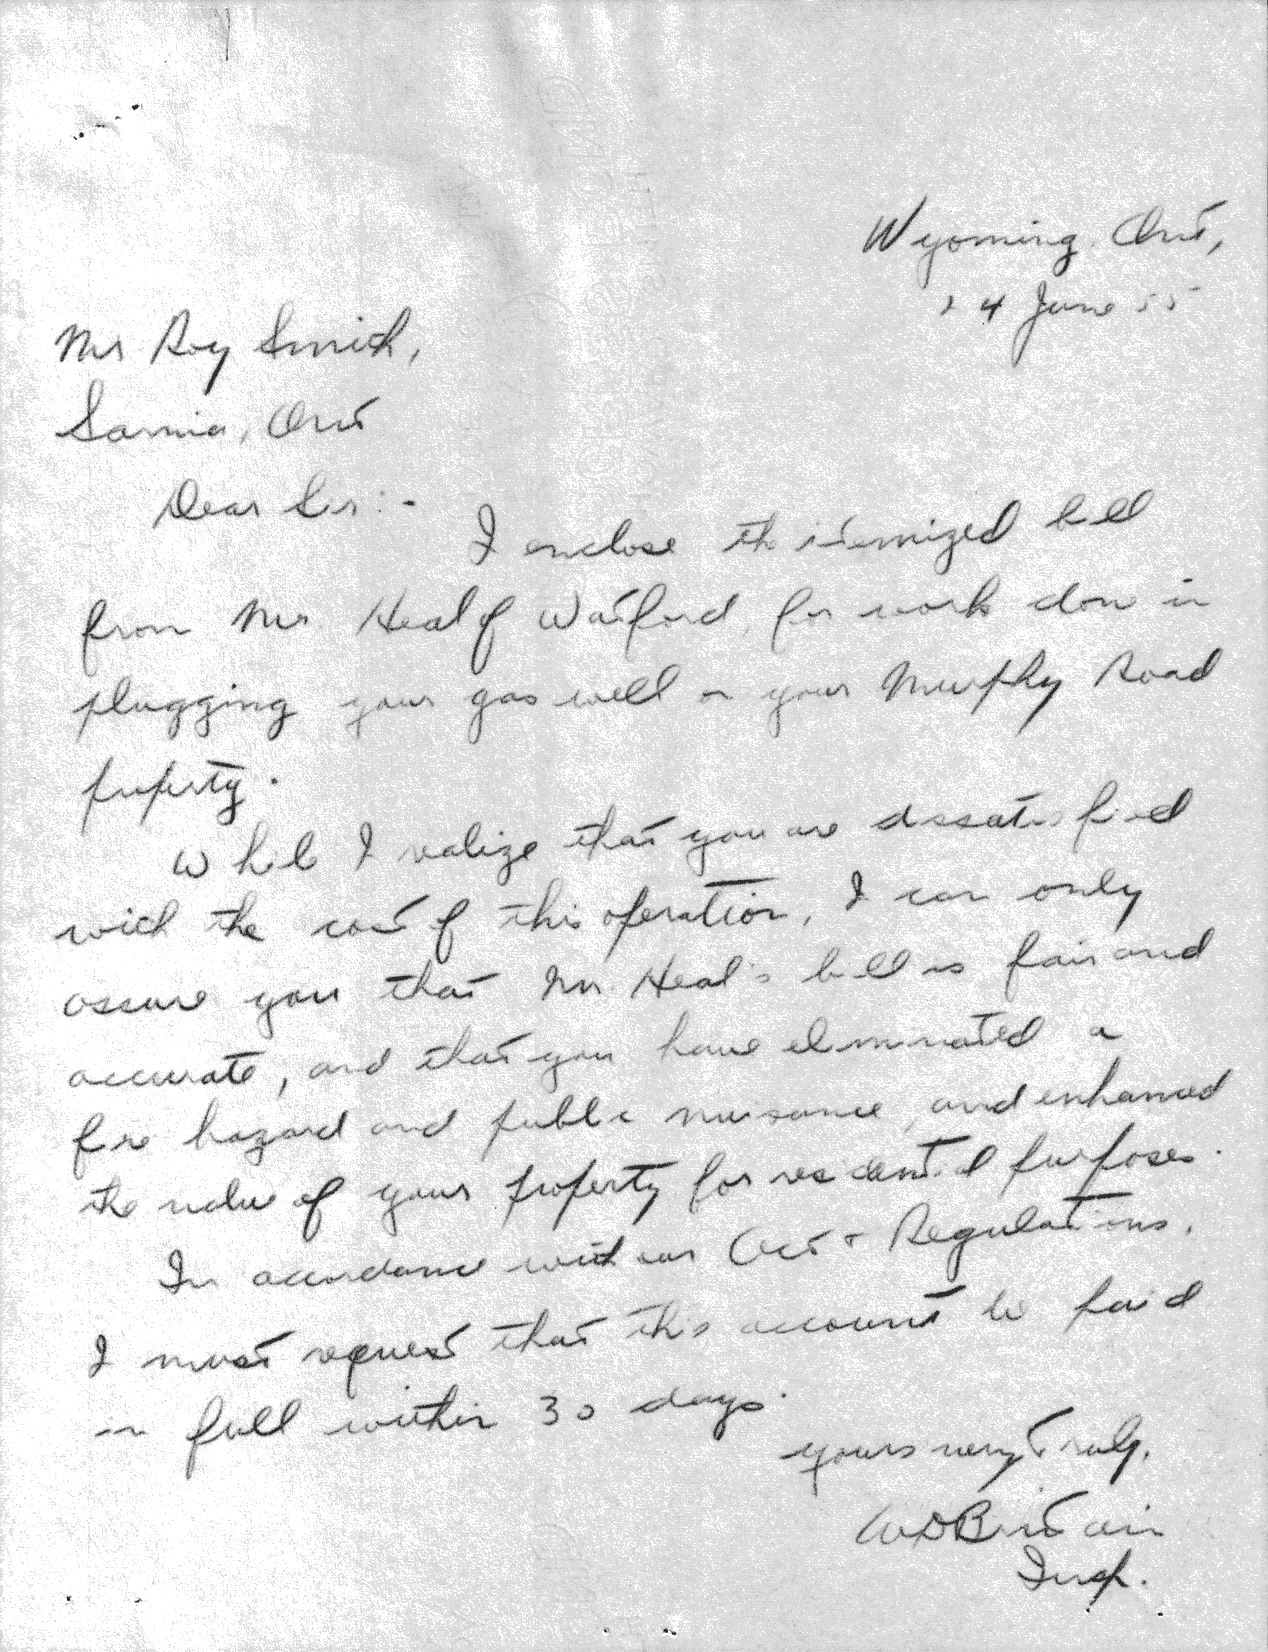 Wyoming. Ont,
24 June 55
Mr Roy Smith,
Sarnia, Ont
Dear Sir:-
I enclose the itemized bill
from Mr Heal of Watford, for work done in
plugging your gas well on your Murphy Road
property.
While I realize that you are dissatisfied
with the cost of this operation, I can only
assure you that Mr. Heal's bill is fair and
accurate, and that you have eliminated a
fire hazard and public nuisance, and enhanced
the value of your property for residential purposes.
In accordance with our Act & Regulations,
I must request that this account be paid
in full within 30 days.
yours very truly,
Insp.